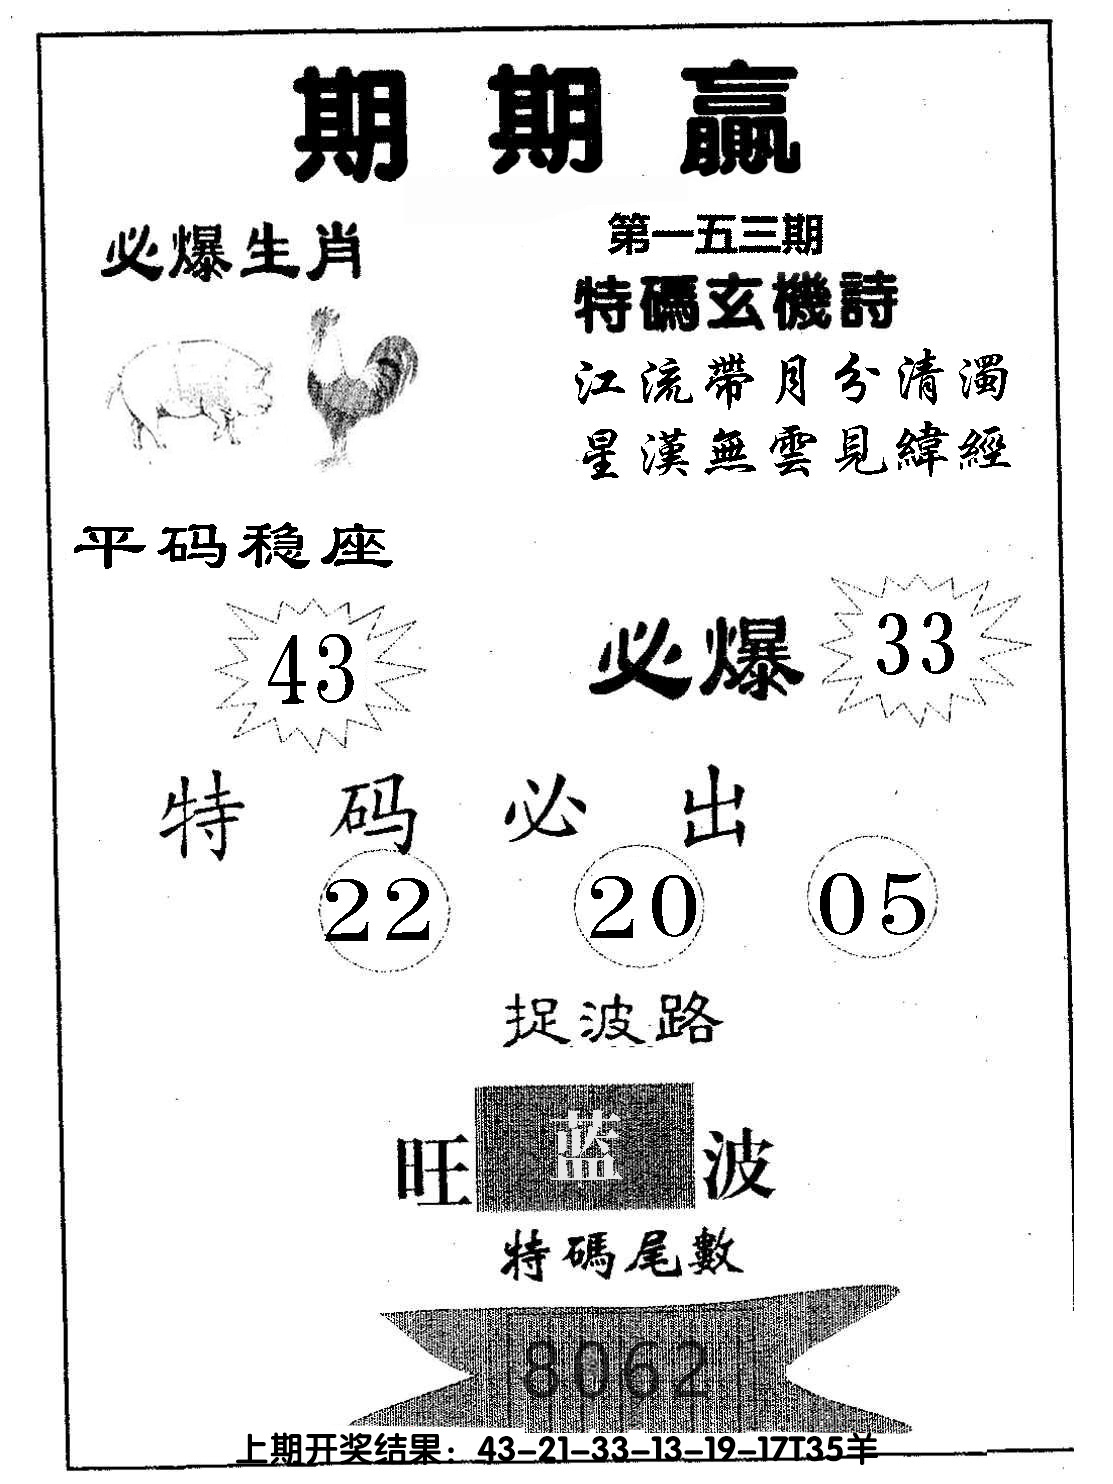 期期贏
必爆生肖
第一五三期
特碼玄機詩
江流帶月分清濁
星漢無雲見緯經
平码稳座
43
必爆 33
特码必出
22 20 05
捉波路
旺 蓝 波
特碼尾數
8062
上期开奖结果：43-21-33-13-19-17T35羊